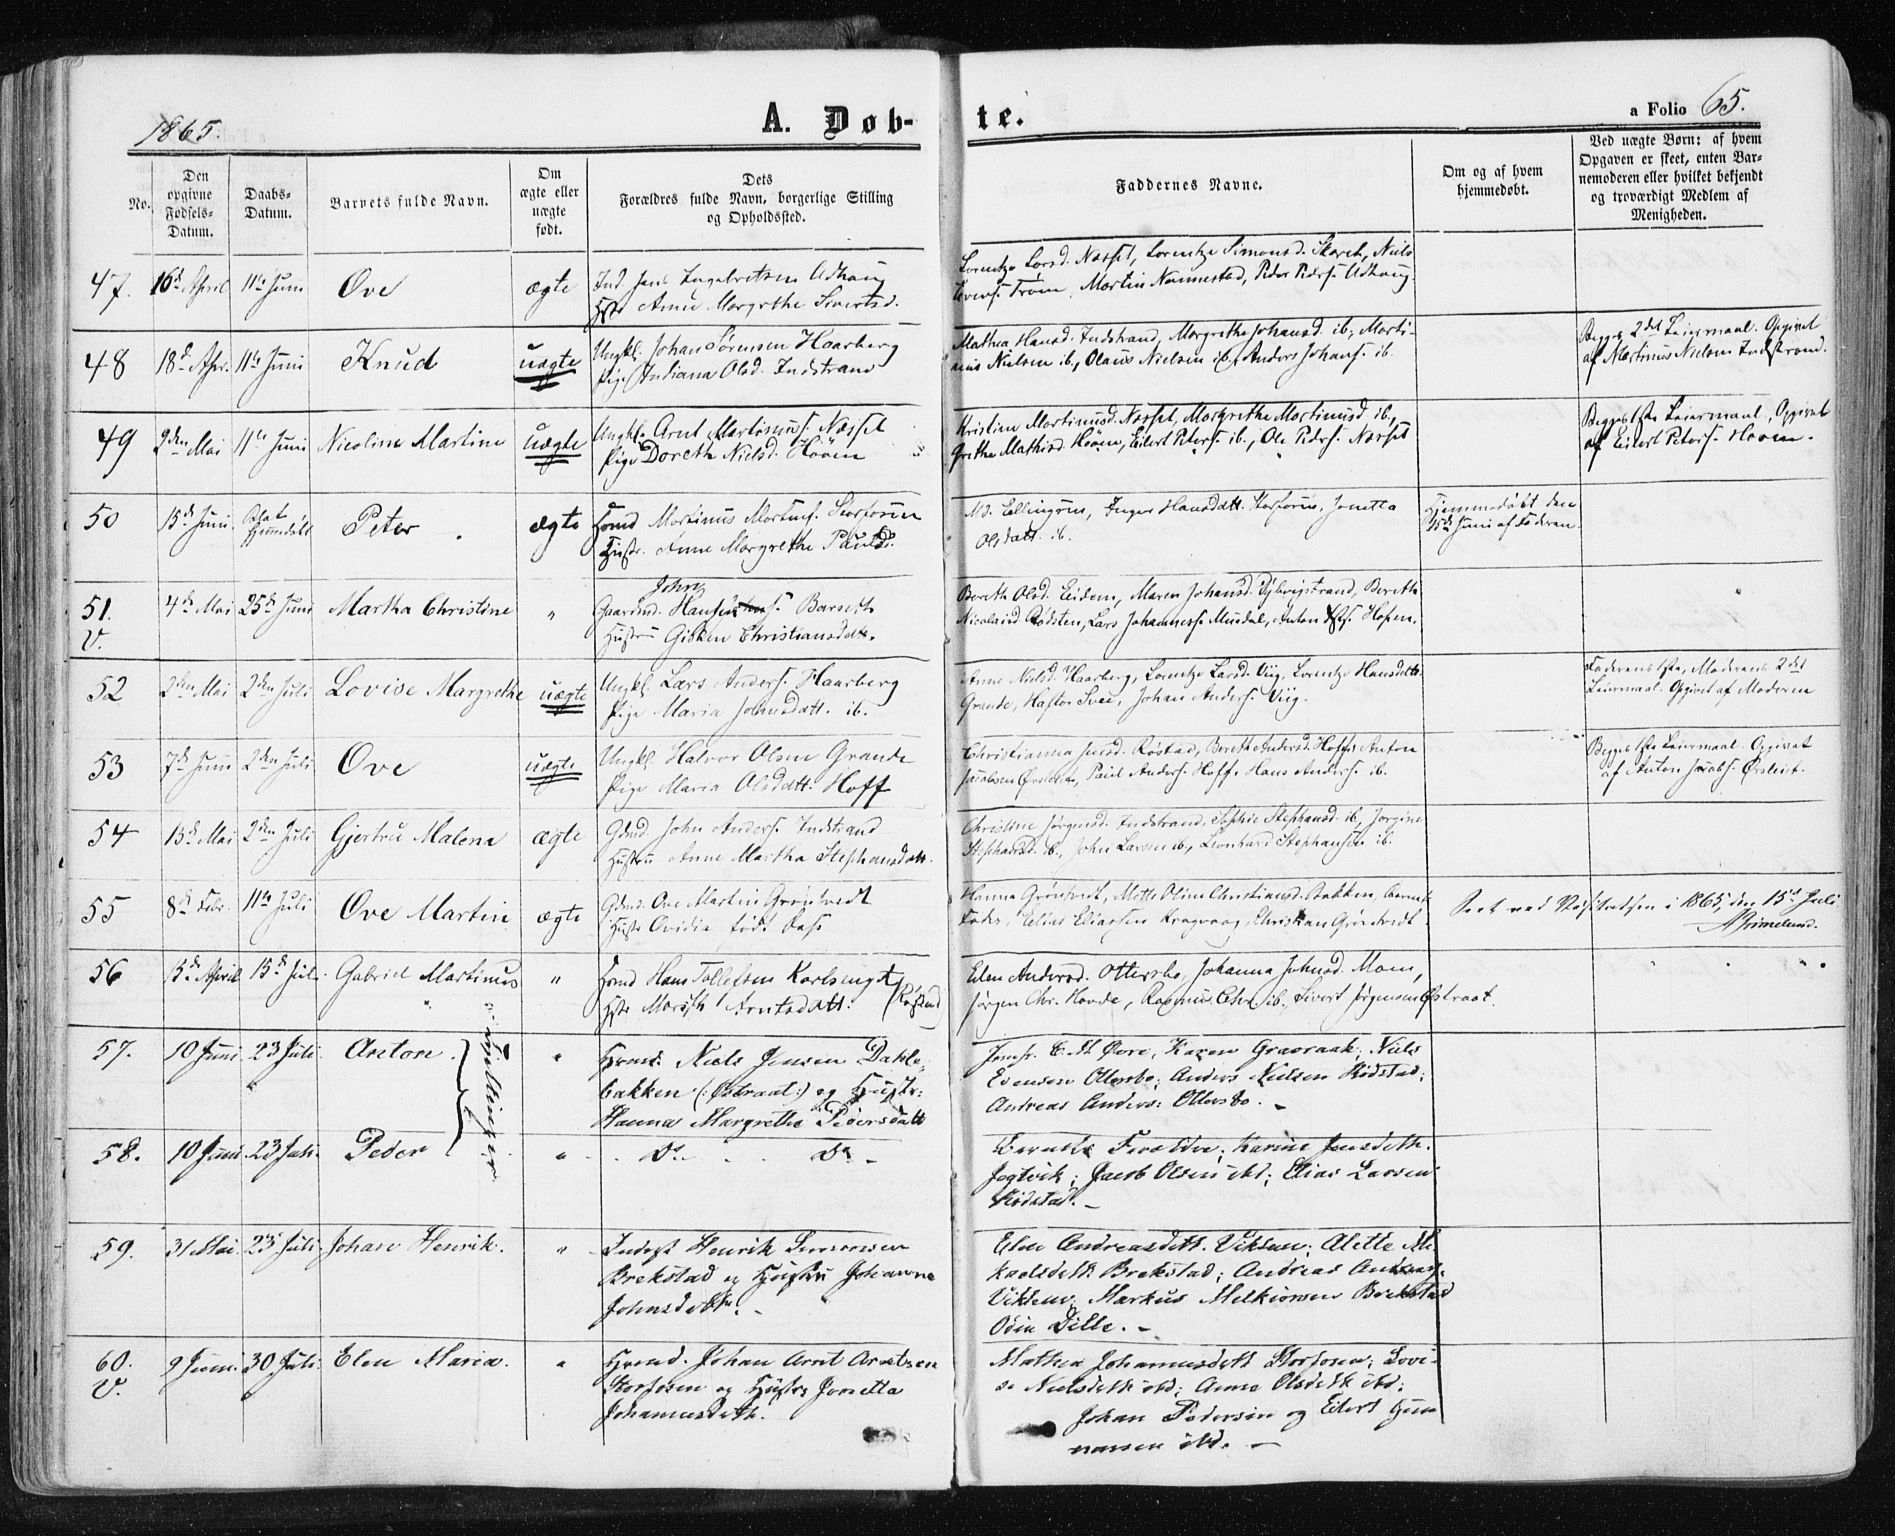 1865.
A. Døb-
te.
a Folio 65.
No.
Den
opgivne
Fødsels-
Datum.
Daabs-
Datum.
Barnets fulde Navn.
Om
ægte eller
uægte
født.
Dets
Forældres fulde Navn, borgerlige Stilling
og Opholdssted.
Faddernes Navne.
Om og af hvem
hjemmedøbt.
Ved uægte Børn: af hvem
Opgaven er skeet, enten Bar-
nemoderen eller hvilket bekjendt
og troværdigt Medlem af
Menigheden.
47. 16de April 11te Juni Ove ægte Ind. Jens Ingebretsen Udhaug
Hstr Anne Margrethe Sivertsd.
Lorentze Larsd. Næsset, Lorentze Simonsd. Skaret, Niels
Iversen Trøen, Martin Nannestad, Peder Peders. Udhaug.
48 18de Apr. 11te Juni Knud uægte Ungkl. Johan Sørensen Haarberg
Pige Indiana Olsd. Indstrand
Mathea Hansd. Indstrand, Margrethe Johansd. ib., Marti-
nus Nielsen ib., Olaus Nielsen ib., Anders Johans. ib.
Begges 2det Leiermaal. Opgivet
af Martinus Nielsen Indstrand.
49 2den Mai 11te Juni Nicoline Martine uægte Ungkl. Arnt Martinus. Næsset
Pige Dorethe Nielsd. Høven
Kristine Martinusd. Næsset, Margrethe Martinusd. ib.,
Grethe Mathisd. Høven, Eilert Peters. ib., Ole Peders. Næsset
Begges 1ste Leiermaal, Opgivet
af Eilert Peters. Hoven.
50 15de Juni Peter ægte Hmd Martinus Mortens. Storfosen
Hustr. Anne Margrethe Paulsd.
Md. Ellingsen, Inger Hansdatt. Storfosen, Jonetta
Olsdatt. ib.
Hjemmedøbt den
15de Juni af Faderen.
51. V. 4de Mai 25de Juni Martha Christine " Gaardmd. Hans Johns. Barseth
Hustru Gisken Christiansdatt.
Bereth Olsd. Eidem, Maren Johansd. , Bereth
Nicolaisd Rødsten, Lars Johannes. Musdal, Anton Hopen.
52 2den Mai 2den Juli Lovise Margrethe uægte Ungkl. Lars Anders. Haarberg
Pige Maria Johnsdatt. ib.
Anne Nielsd. Haarberg, Lorentze Larsd. Viig, Lorentze Hansdatt.
Grande, Haftor , Johan Anders. Viig.
Faderens 1ste, Moderens 2det
Leiermaal. Opgivet af Moderen
53 7de Juni 2den Juli Ove uægte Ungkl. Halvor Olsen Grande
Pige Maria Olsdatt. Hoff
Christianna Røstad, Bereth Andersd. Hoff, Anton
Jacobsen , Paul Anders. Hoff, Hans Anders. ib.
Begges 1ste Leiermaal. Opgivet
af Anton Jacobs.
54 13de Mai 2den Juli Gjertru Malena ægte Gdmd. John Anders. Indstrand
Hustru Anne Martha Stephansdatt.
Christine Jørgensd. Indstrand, Sophie Stephansd. ib., Jorgine
Stephansd. ib., John Larsen ib., Leonhard Stephansen ib.
55 8de Febr. 11te Juli Ove Martin ægte Gdmd. Ove Martin Grøntvedt
Hustr Ovidia født Dass
Hanna Grøntvedt, Mette Oline Christiansd. Bakken, Barnets
Fader, Elias Eliassen Kragvaag, Christian Grøntvedt.
Seet ved Visitatsen i 1865, den 15de Juli
A Grimelund.
56 13de April 15de Juli Gabriel Martinus " Hmd Hans Tollefsen Karlsenget (Røstad)
Hstr Marith Arntsdatt:
Elen Andersd. Ottersbo, Johanna Johnsd. Moen,
Jørgen Chr. Hovde, Rasmus Chr. ib., Sivert Jørgensen Østraat.
57. 10 Juni 23 Juli. Anton. Tvillinger " Hmd. Niels Jensen Dahle-
bakken (: Østraat:) og Hustr:
Hanna Margrethe Pedersdatt
Jomfr. C. M Øvre, Karen Graaraak, Niels
Evensen Ottersbo; Anders Nielsen Rødstad;
Andreas Anders: Ottersbo. -
58. 10 Juni 23 Juli. Peder " Do. Do -
Barnets Forældre; Karine Jensdatt.
Jøgtvik; Jacob Olsen ibd; Elias Larsen
Rødstad. -
59. 31 Mai. 23 Juli Johan Henrik. " Inderst Henrik Sørensen
Brekstad og Hustru Johanna
Johnsdattr. -
Elen Andreasdatt. Viklem; Alette Mi-
kaelsdatt. Brekstad; Andreas Andreas.
Viklem; Markus Melkiorsen Brekstad
Odin Dille. -
60. V. 9 Juni. 30 Juli. Elen Maria. " Hmd. Johan Arnt Arntsen
Storfosen og Hustr: Jonetta
Johannesdatt.
Mathea Johannesdatt Storfosen; Lovi-
se Nielsdatt ibd; Anna Olsdatt ibd;
Johan Pedersen og Eilert Gun-
narsen ibd. -